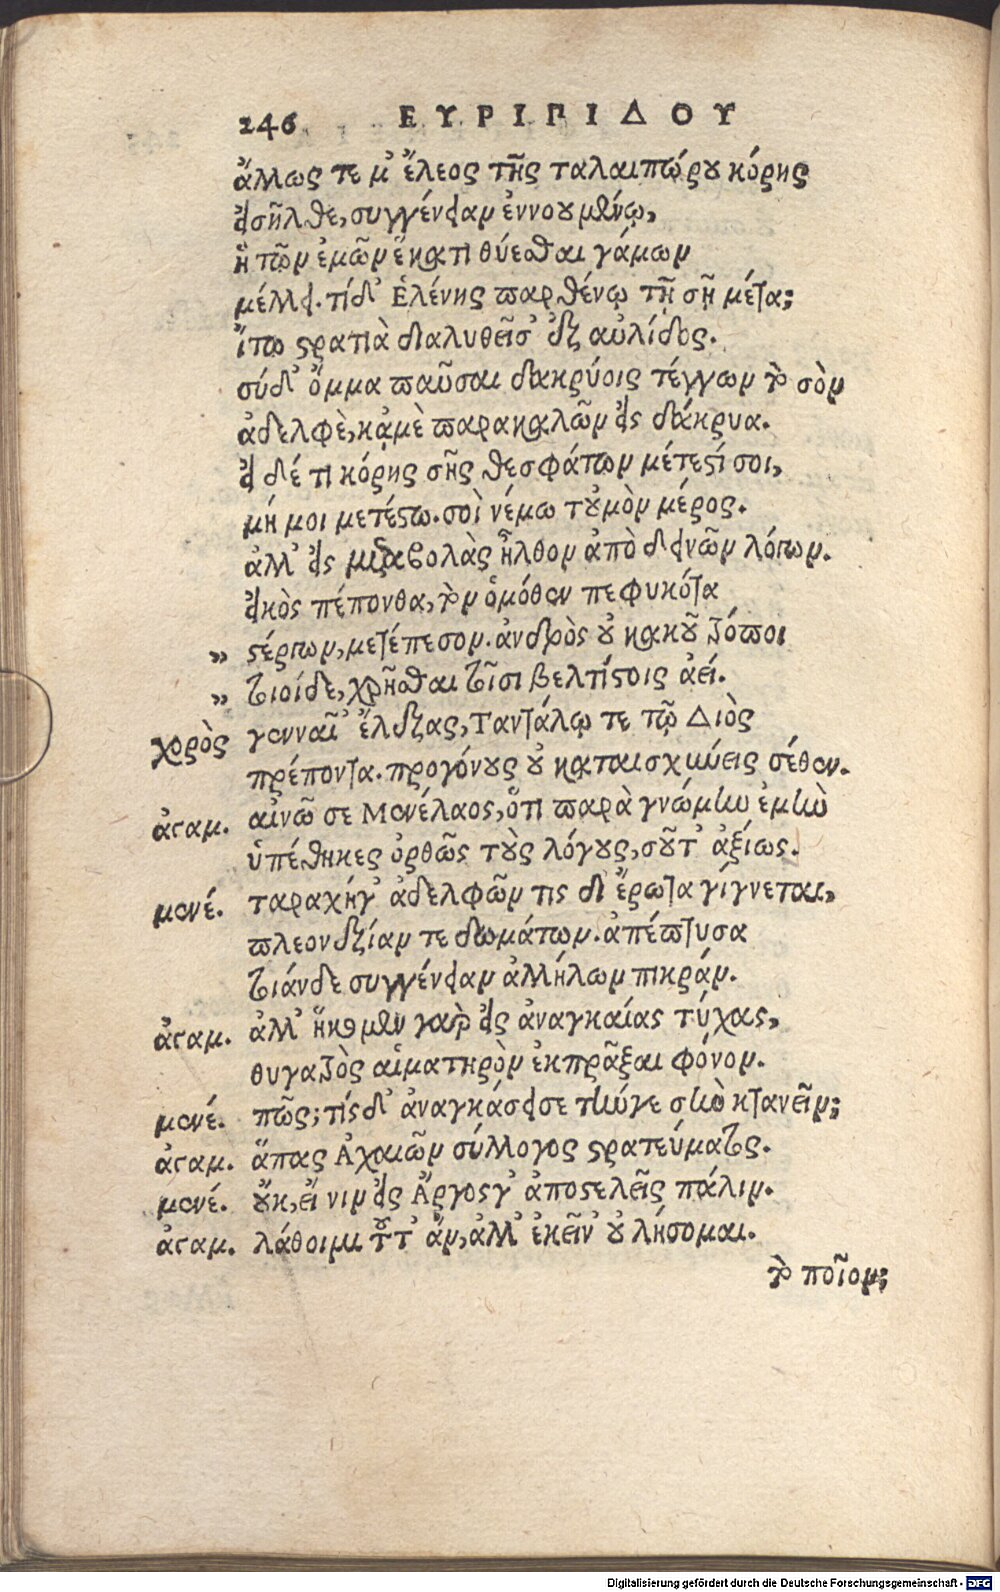 246 ΕΥΡΙΠΙΔΟΥ
ἄλλως τε μ' ἔλεος τῆς ταλαιπώρου κόρης
εἰσῆλθε, συγγένειαν ἐννουμένῳ,
ἣ τῶν ἐμῶν ἕκατι θύεσθαι γάμων
μέλλει. τί δ' Ἑλένης παρθένῳ τῇ σῇ μέτα;
ἴτω στρατιὰ διαλυθεῖσ' ἐξ αὐλίδος.
σύ δ' ὄμμα παῦσαι δακρύοις τέγγων τὸ σὸν
ἀδελφὲ, κἀμὲ παρακαλῶν εἰς δάκρυα.
εἰ δέ τι κόρης σῆς θεσφάτων μέτεστί σοι,
μή μοι μετέστω. σοὶ νέμω τοὐμὸν μέρος.
ἀλλ' εἰς μεταβολὰς ἦλθον ἀπὸ δεινῶν λόγων.
εἰκὸς πέπονθα, τὸν ὁμόθεν πεφυκότα
„ στέργων, μετέπεσον. ἀνδρὸς οὐ κακοῦ τρόποι
„ τοιοίδε, χρῆσθαι τοῖσι βελτίστοις ἀεί.
χορὸς γενναῖ' ἔλεξας, Ταντάλῳ τε τῷ Διὸς
πρέποντα. προγόνους οὐ καταισχύνεις σέθεν.
ἀγαμ. αἰνῶ σε Μενέλαος, ὅτι παρὰ γνώμην ἐμὴν
ὑπέθηκες ὀρθῶς τοὺς λόγους, σοῦ τ' ἀξίως.
μενέ. ταραχή γ' ἀδελφῶν τις δι' ἔρωτα γίγνεται,
πλεονεξίαν τε δωμάτων. ἀπέπτυσα
τοιάνδε συγγένειαν ἀλλήλων πικράν.
ἀγαμ. ἀλλ' ἥκομεν γαρ εἰς ἀναγκαίας τύχας,
θυγατρὸς αἱματηρὸν ἐκπρᾶξαι φόνον.
μενέ. πῶς; τίς δ' ἀναγκάσει σε τήν γε σὴν κτανεῖν;
ἀγαμ. ἅπας Ἀχαιῶν σύλλογος στρατεύματος.
μενέ. οὔκ, εἴ νιν εἰς Ἄργος γ' ἀποστελεῖς πάλιν.
ἀγαμ. λάθοιμι τοῦτ' ἄν, ἀλλ' ἐκεῖν' οὐ λήσομαι.
τὸ ποῖον;
Digitalisierung gefördert durch die Deutsche Forschungsgemeinschaft - DFG